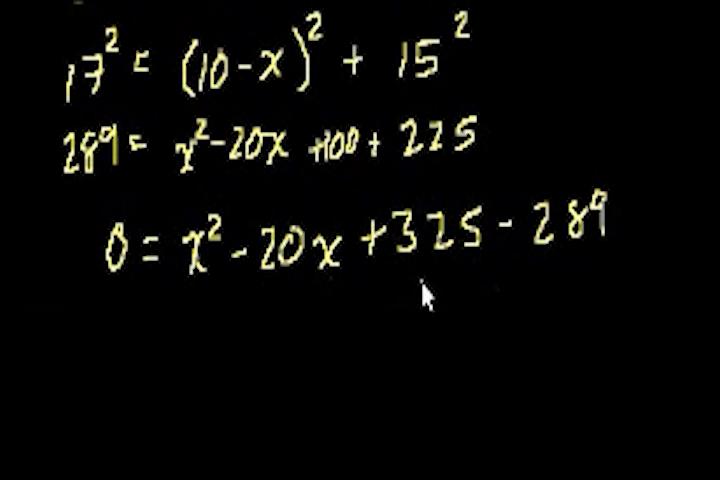 17² = (10-x)² + 15²
289 = x²-20x +100+ 225
0 = x²-20x+325-289